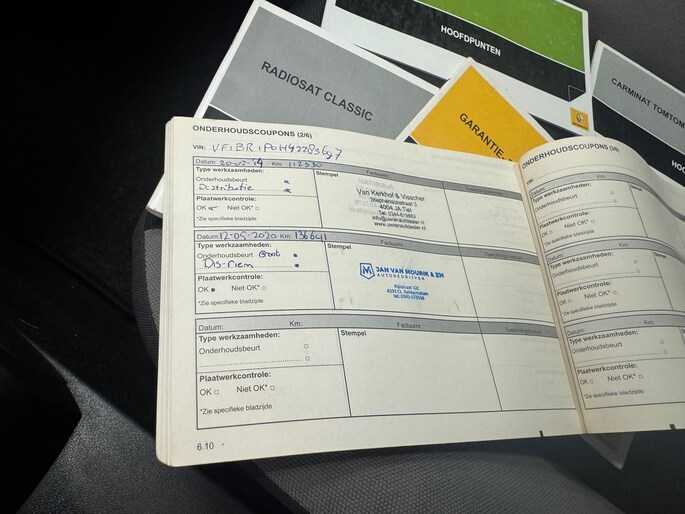 HOOFDPUNTEN
RADIOSAT CLASSIC
CARMINAT TOMTOM
GARANTIE-
HOO
ONDERHOUDSCOUPONS (2/6)
VIN:
Datum: Km: 112530
Type werkzaamheden:
Stempel
Onderhoudsbeurt
Distributie
Plaatwerkcontrole:
OK Niet OK*
*Zie specifieke bladzijde
Factuurnr.
Van Kerkhof & Visscher
Stephensonstraat 3
4004 JA Tiel
Tel. 0344-619663
Datum: 12-05-2020 Km: 136641
Type werkzaamheden:
Stempel
Factuurnr.
Onderhoudsbeurt Groot
Dis-riem
Plaatwerkcontrole:
OK Niet OK*
*Zie specifieke bladzijde
JAN VAN MOURIK & ZN
AUTOBEDRIJVEN
4191 CL Geldermalsen
Datum: Km: Factuurnr.
Type werkzaamheden:
Stempel
Onderhoudsbeurt
Plaatwerkcontrole:
OK Niet OK*
*Zie specifieke bladzijde
6.10
ONDERHOUDSCOUPONS (3/6)
VIN:
Datum:
Type werkzaamheden:
Onderhoudsbeurt
Plaatwerkcontrole:
OK Niet OK*
*Zie specifieke bladzijde
Datum:
Type werkzaamheden:
Onderhoudsbeurt
Plaatwerkcontrole:
OK Niet OK*
*Zie specifieke bladzijde
Datum:
Type werkzaamheden:
Onderhoudsbeurt
Plaatwerkcontrole:
OK Niet OK*
*Zie specifieke bladzijde